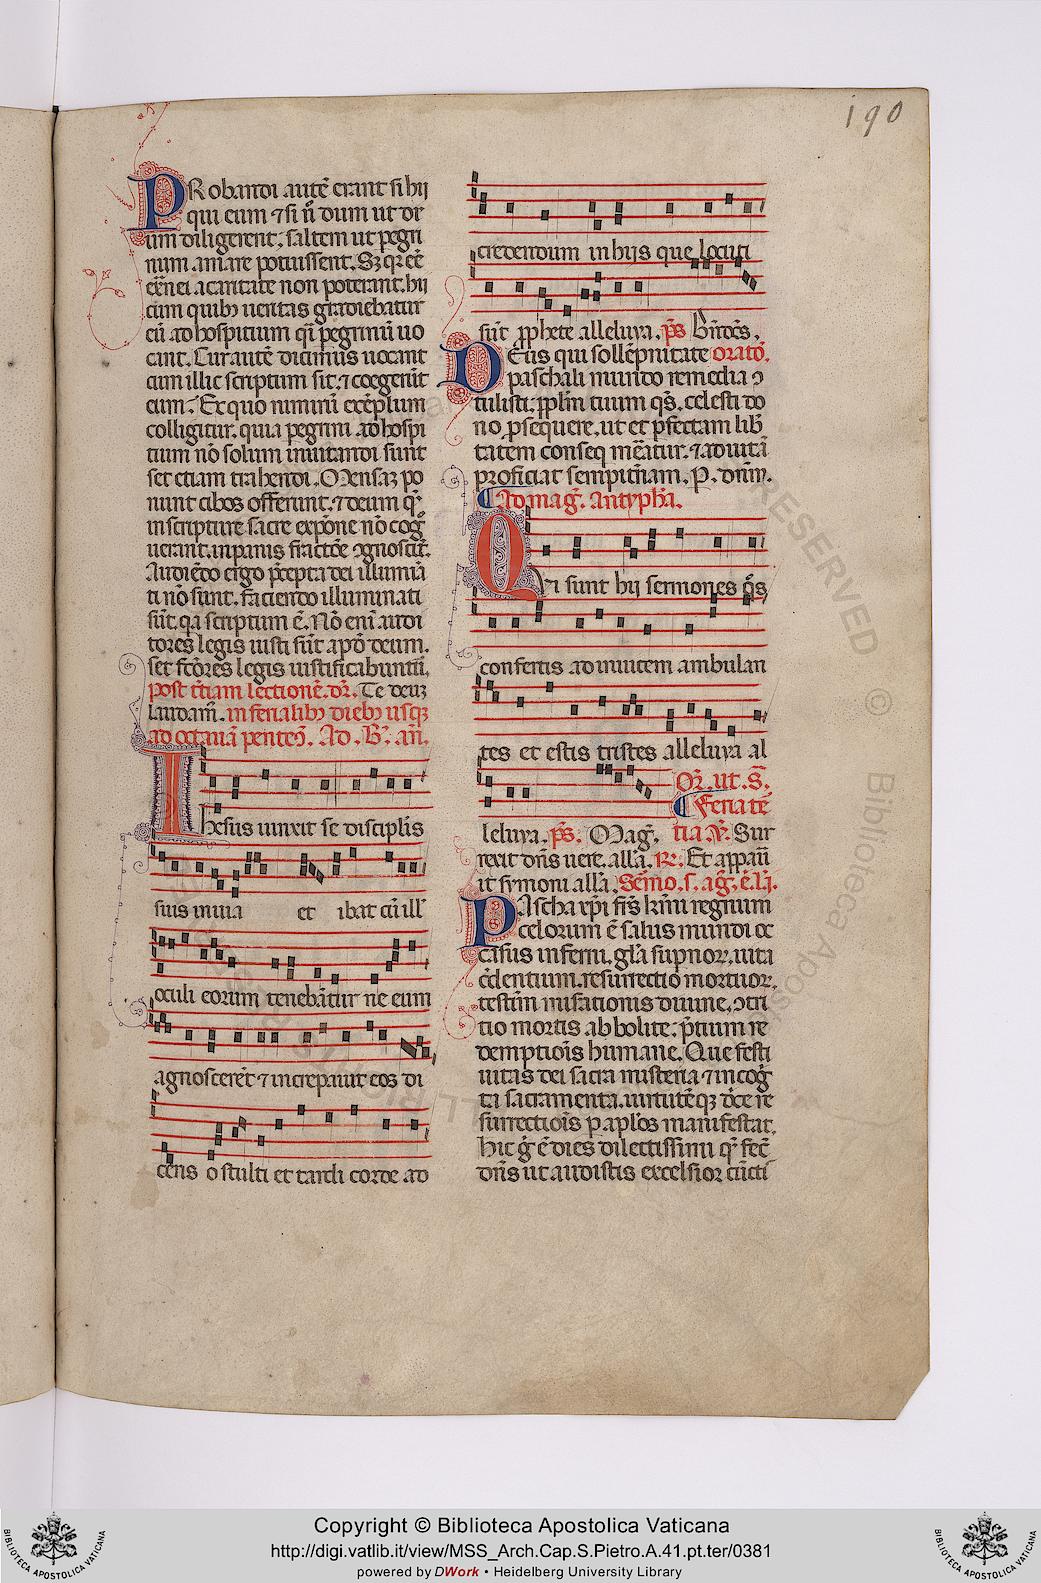 190
PRobandi autē erant si hii
qui eum ⁊ si n̄ dum ut de
um diligerent: saltem ut pegri
num amare potuissent. Sꝫ qr eē
exnei a caritate non poterant. hii
cum quibꝫ ueritas gradiebatur
eū ad hospitium qͣ pegrinū uo
cant. Cur autē dicimus uocant
cum illic scriptum sit: ⁊ coegerūt
eum. Ex quo nimirū exēplum
colligitur. quia pegrini ad hospi
tium nō solum inuitandi sunt
set etiam trahendi. Mensaꝫ po
nunt cibos offerunt. ⁊ deum qͤ
in scripture sacre expōne nō cog̃
uerant. in panis fractōe ↄgnoscūt.
Audiēdo ergo p̄cepta dei illumīa
ti nō sunt. faciendo illuminati
sūt. qa scriptum ē. Nō enī audi
tores legis iusti sūt apd deum.
set fcōres legis iustificabuntur.
post t̄tiam lectionē. dr̄. Te deuꝫ
laudam̄. in ferialibꝫ diebꝫ usqꝫ
ad octauā pentec̄. Ad. B. an̄.
Ihesus iunxit se discipĺis
suis in uia et ibat cū illˢ
oculi eorum tenebātur ne eum
agnoscerēt ⁊ increpauit eos di
cens o stulti et tardi corde ad
credendum in hijs que locuti
sūt ꝓphete alleluya. ps̄ Bn̄dcs̄.
DEus qui sollēpnitate oratō.
paschali mundo remedia ↄ
tulisti. pplm̄ tuum qs̄. celesti do
no ꝓsequere. ut et pfectam lib̄
tatem conseq meātur. ⁊ ad uitā
proficiat sempit̄nam. P. dnm̄.
Ad mag̃. antyph̄a.
Qui sunt hij sermones qͦs
confertis ad inuicem ambulan
tes et estis tristes alleluya al
leluya. ps̄. Mag̃.
Or̄. ut. s̄.
Feria te
tia. Ɏ. Sur
rexit dn̄s uere. all̄a. ℟. Et appaū
it symoni all̄a. Sermo. s. ag̃. ē. l̄i.
PAscha xp̄i frs̄ kmī regnum
celorum ē salus mundi oc
casus inferni. gl̄a supnoꝝ. uita
c̄dentium. resurrectio mortuoꝝ.
testīm misationis diuine. ↄtri
tio mortis abbolite: p̄tium re
demptiōis humane. Que festi
uitas dei sacra misteria ⁊ incog̃
ta sacramenta. uirtutēqꝫ dc̄e re
surrectiōis p aplos manifestat.
Hic g̊ ē dies dilectissimi qͣ fec̄
dn̄s ut audistis excelsior cūcti
ALL RIGHTS RESERVED © Biblioteca Apostolica Vaticana
Copyright © Biblioteca Apostolica Vaticana
http://digi.vatlib.it/view/MSS_Arch.Cap.S.Pietro.A.41.pt.ter/0381
powered by DWork • Heidelberg University Library
BIBLIOTECA APOSTOLICA VATICANA
BIBLIOTECA APOSTOLICA VATICANA